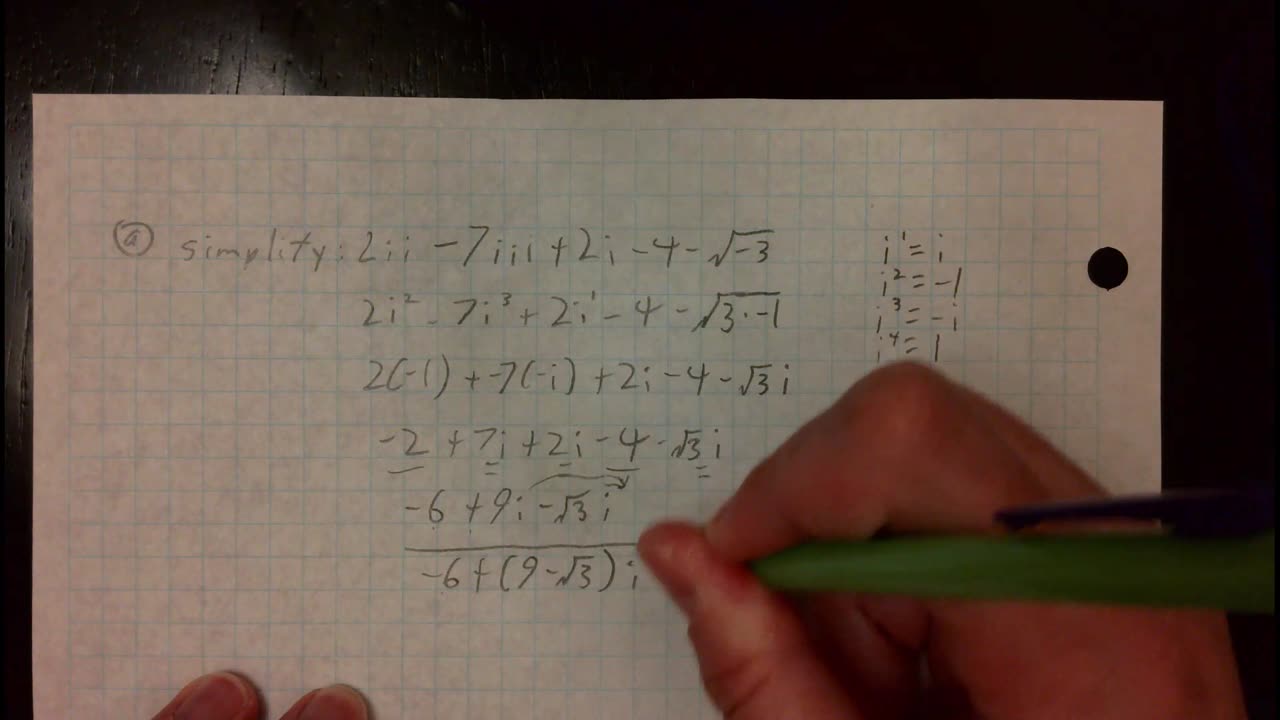 ⓐ simplify: 2ii - 7iii + 2i - 4 - √-3
2i² - 7i³ + 2i¹ - 4 - √3·-1
2(-1) + -7(-i) + 2i - 4 - √3 i
-2 + 7i + 2i - 4 - √3 i
-6 + 9i - √3 i
-6 + (9 - √3) i
i¹ = i
i² = -1
i³ = -i
i⁴ = 1